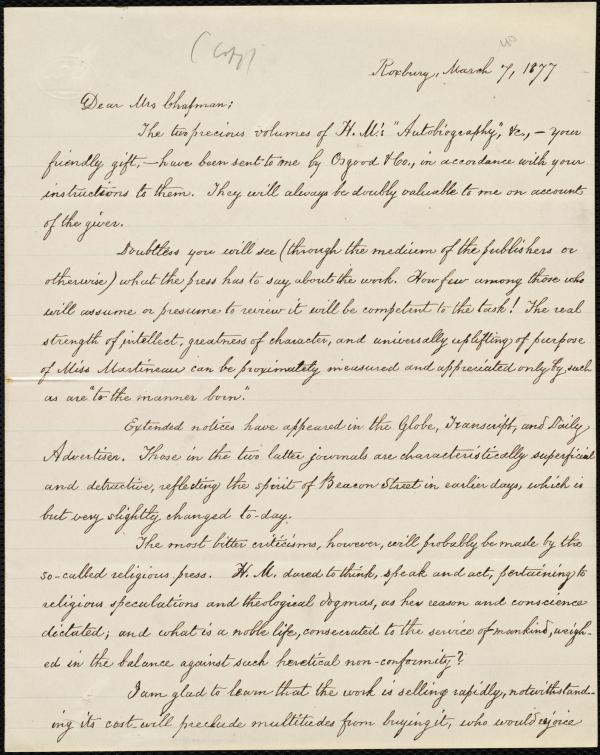 (Copy)
Roxbury, March 7, 1877
Dear Mrs Chapman;
The two precious volumes of H. M's "Autobiography", &c., — your
friendly gift, — have been sent to me by Osgood & Co., in accordance with your
instructions to them. They will always be doubly valuable to me on account
of the giver.
Doubtless you will see (through the medium of the publishers or
otherwise) what the press has to say about the work. How few among those who
will assume or presume to review it will be competent to the task! The real
strength of intellect, greatness of character, and universally uplifting of purpose
of Miss Martineau can be proximately measured and appreciated only by such
as are "to the manner born".
Extended notices have appeared in the Globe, Transcript, and Daily
Advertiser. Those in the two latter journals are characteristically superficial
and detractive, reflecting the spirit of Beacon Street in earlier days, which is
but very slightly changed to-day.
The most bitter criticisms, however, will probably be made by the
so-called religious press. H. M. dared to think, speak and act, pertaining to
religious speculations and theological dogmas, as her reason and conscience
dictated; and what is a noble life, consecrated to the service of mankind, weigh-
ed in the balance against such heretical non-conformity?
I am glad to learn that the work is selling rapidly, notwithstand-
ing its cost will preclude multitudes from buying it, who would rejoice